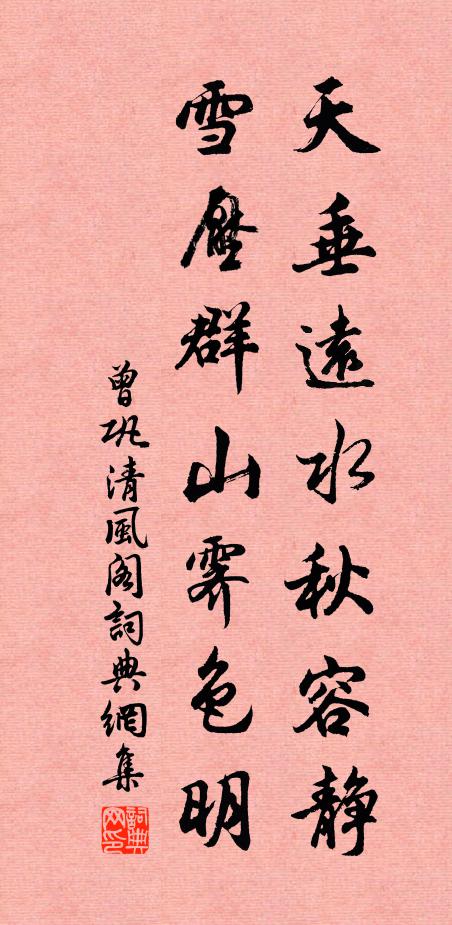 天垂遠水秋容静
雪壓群山霽色明
曾巩清風阁詞典網集
詞典
网印